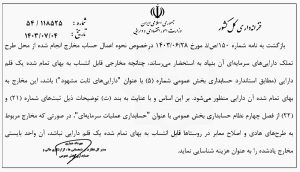 جمهوری اسلامی ایران
خزانه‌داری کل کشور
شماره: ۵۴/۱۱۸۵۲۵
تاریخ: ۱۴۰۳/۰۷/۰۴
بازگشت به نامه شماره ۱۵۰ مورخ ۱۴۰۳/۰۶/۲۸ درخصوص نحوه اعمال حساب مخارج انجام شده از محل طرح
تملک دارایی‌های سرمایه‌ای آن بنیاد به استحضار می‌رساند، چنانچه مخارجی قابل انتساب به بهای تمام شده یک قلم
دارایی (مطابق استاندارد حسابداری بخش عمومی شماره (۵) با عنوان "دارایی‌های ثابت مشهود") باشد، این مخارج به
بهای تمام شده آن دارایی منظور می‌شود. بر این اساس و با عنایت به بند (ت) توضیحات ذیل ثبت‌های شماره (۲۱) و
(۲۲) از فصل چهارم نظام حسابداری بخش عمومی با عنوان "حسابداری عملیات سرمایه‌ای"، در صورتی که مخارج مربوط
به طرح‌های هادی و اصلاح معابر در روستاها قابل انتساب به بهای تمام شده یک قلم دارایی نباشد، آن واحد بایستی
مخارج یادشده را به عنوان هزینه شناسایی نماید.